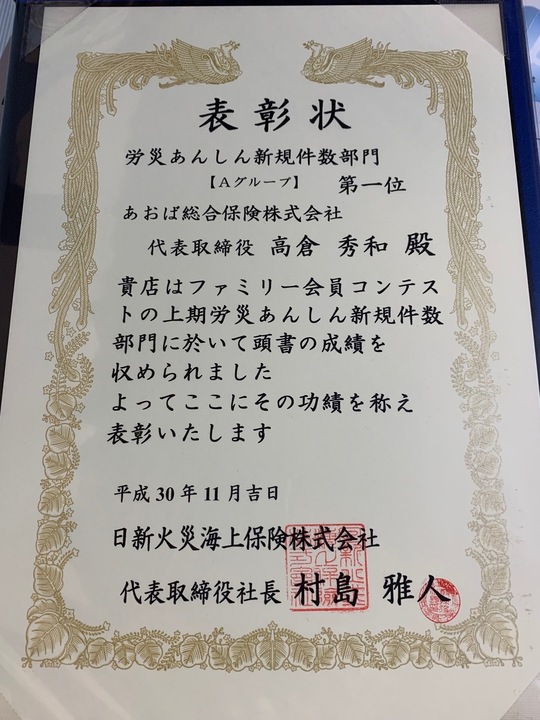 表彰状
労災あんしん新規件数部門
【Aグループ】 第一位
あおば総合保険株式会社
代表取締役 高倉 秀和 殿
貴店はファミリー会員コンテス
トの上期労災あんしん新規件数
部門に於いて頭書の成績を
収められました
よってここにその功績を称え
表彰いたします
平成30年11月吉日
日新火災海上保険株式会社
代表取締役社長 村島 雅人